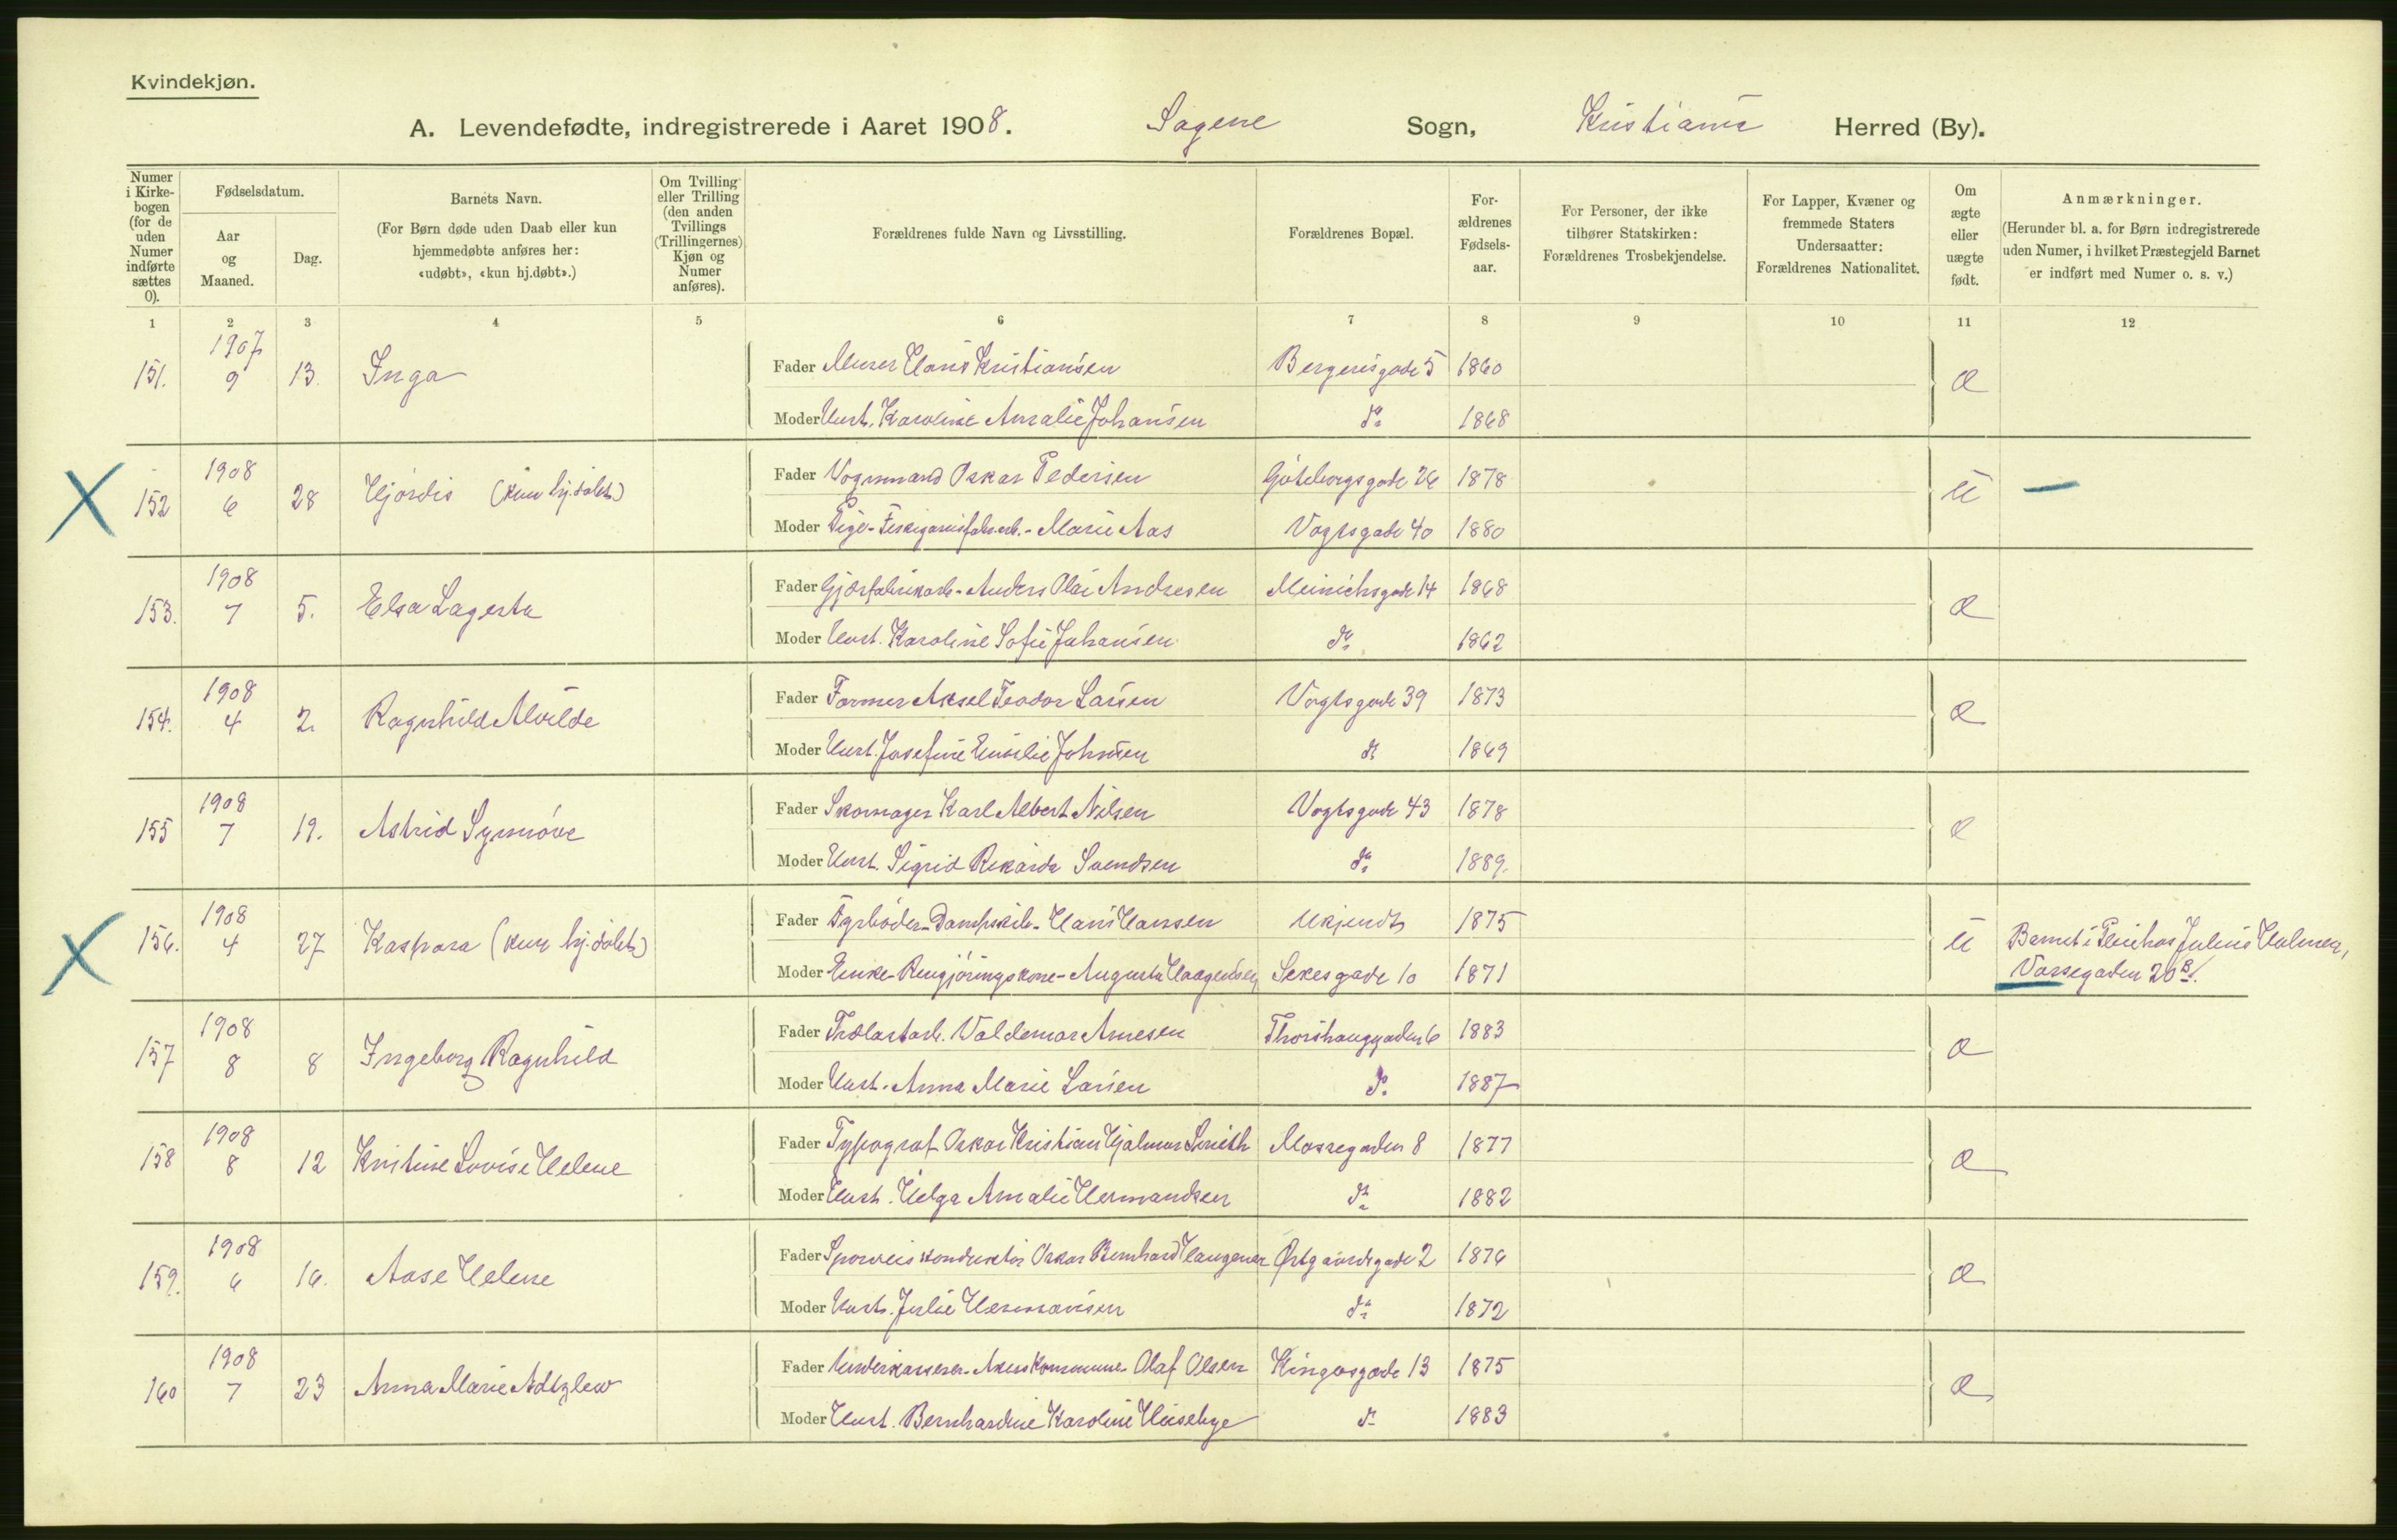 Kvindekjøn.
A. Levendefødte, indregistrerede i Aaret 1908. Sagene Sogn, Kristiania Herred (By).
Numer i Kirkebogen (for de uden Numer indførte sættes 0).
Fødselsdatum.
Aar og Maaned.
Dag.
Barnets Navn.
(For Børn døde uden Daab eller kun hjemmedøbte anføres her: «udøbt», «kun hj.døbt».)
Om Tvilling eller Trilling (den anden Tvillings (Trillingernes) Kjøn og Numer anføres).
Forældrenes fulde Navn og Livsstilling.
Forældrenes Bopæl.
Forældrenes Fødselsaar.
For Personer, der ikke tilhører Statskirken: Forældrenes Trosbekjendelse.
For Lapper, Kvæner og fremmede Staters Undersaatter: Forældrenes Nationalitet.
Om ægte eller uægte født.
Anmærkninger.
(Herunder bl. a. for Børn indregistrerede uden Numer, i hvilket Præstegjeld Barnet er indført med Numer o. s. v.)
1 2 3 4 5 6 7 8 9 10 11 12
151. 1907 9 13. Inga Fader Murer Hans Kristiansen Bergensgade 5 1860 æ
Moder Hust. Karoline Amalie Johansen do 1868
152 1908 6 28 Hjørdis (kun hj.døbt) Fader Vognmand Oskar Pedersen Gøteborgsgade 26 1878 u —
Moder Pige - Marie Aas Vogtsgade 40 1880
153. 1908 7 5. Elsa Lagerta Fader Gjærfabrikarb. - Anders Olai Andresen Meinichsgade 14 1868 æ
Moder Hust. Karoline Sofie Johansen do 1862
154. 1908 4 2. Ragnhild Alvilde Fader Former Aksel Teodor Larsen Vogtsgade 39 1873 æ
Moder Hust. Josefine Emilie Johnsen do 1869
155 1908 7 19. Astrid Synnøve Fader Skomager Karl Albert Nilsen Vogtsgade 43 1878 æ
Moder Hust. Sigrid Rikarda Svendsen do 1889.
156. 1908 4 27 Kaspara (kun hj.døbt) Fader Fyrbøder - Dampskib - Hans Hansen Ukjendt 1875 u Barnet i Pleie hos Julius Holmen,
Moder Enke - Rengjøringskone - Augusta Haagensen Sekesgade 10 1871 Vossegaden 20 B.
157 1908 8 8 Ingeborg Ragnhild Fader Trælastarb. Valdemar Arnesen Thorshauggaden 6 1883 æ
Moder Hust. Anna Marie Larsen do 1887
158 1908 8 12 Kristine Lovise Helene Fader Typograf Oskar Kristian Hjalmar Smith Mossegaden 8 1877 æ
Moder Hust. Helga Amalie Hermandsen do 1882
159. 1908 6 16. Aase Helene Fader Sporveiskonduktør Oskar Bernhard Haugener Østgaardsgade 2 1876 æ
Moder Hust. Julie Hermansen do 1872
160 1908 7 23 Anna Marie Fader Underkasserer - Akers Kommune Olaf Olsen Kingosgade 13 1875 æ
Moder Hust. Bernhardine Karoline Huseby do 1883